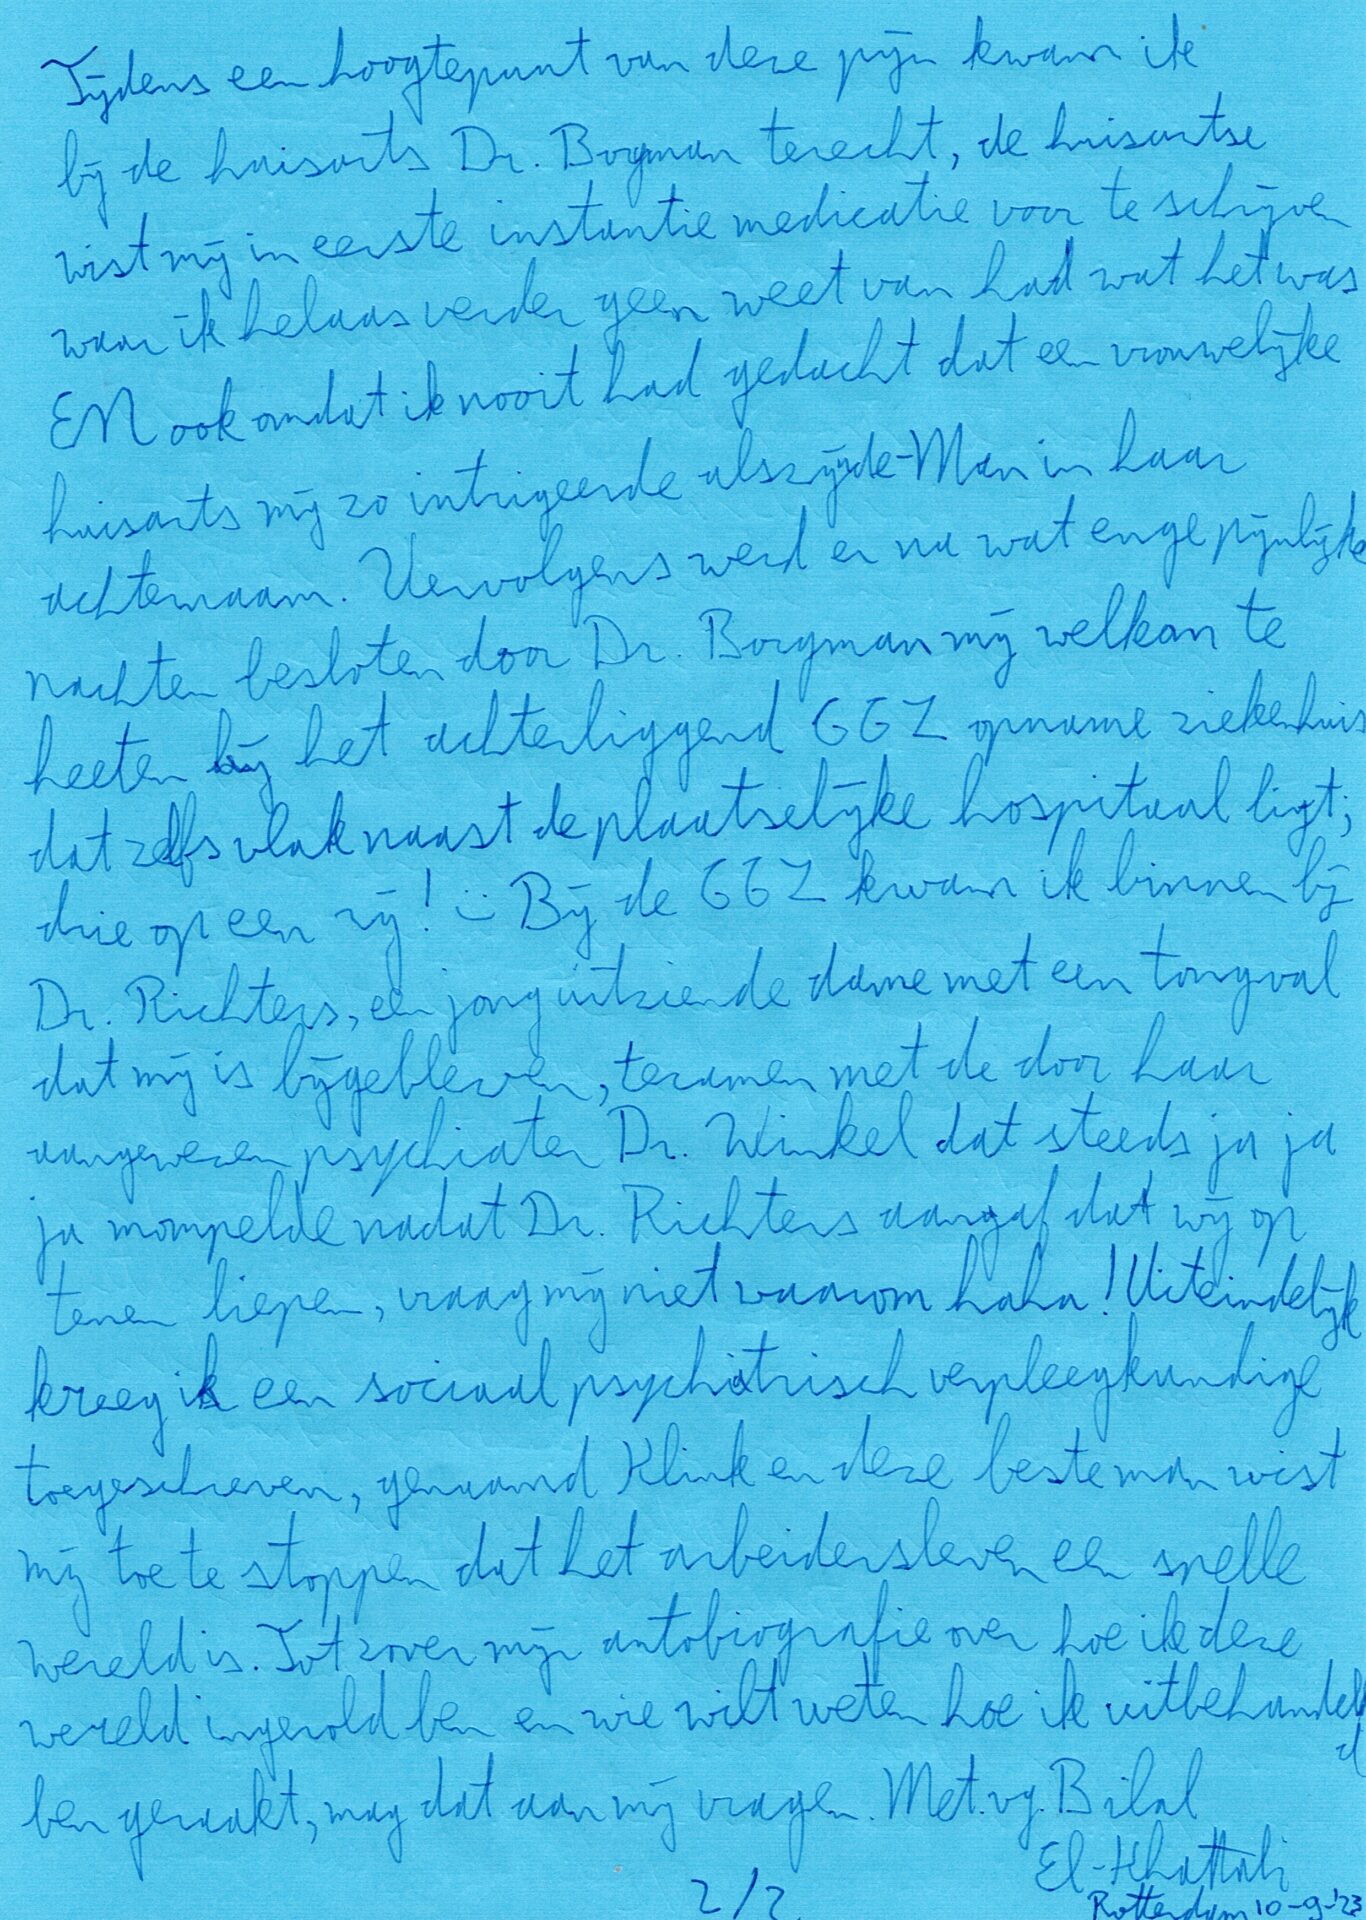 Tijdens een hoogtepunt van deze pijn kwam ik
bij de huisarts Dr. Borgman terecht, de huisartse
wist mij in eerste instantie medicatie voor te schijven
waar ik helaas verder geen weet van had wat het was
EN ook omdat ik nooit had gedacht dat een vrouwelijke
huisarts mij zo intrigeerde als zijde-Man in haar
achternaam. Vervolgens werd er na wat enge pijnlijke
nachten besloten door Dr. Borgman mij welkom te
heeten bij het achterliggend GGZ opname ziekenhuis
dat zelfs vlak naast de plaatselijke hospitaal ligt;
drie op een rij! :) Bij de GGZ kwam ik binnen bij
Dr. Richters, een jong uitziende dame met een tongval
dat mij is bijgebleven, tezamen met de door haar
aangewezen psychiater Dr. Winkel dat steeds ja ja
ja mompelde nadat Dr. Richters aangaf dat wij op
tenen liepen, vraag mij niet waarom haha! Uiteindelijk
kreeg ik een sociaal psychiatrisch verpleegkundige
toegeschreven, genaamd Klink en deze beste man wist
mij toe te stoppen dat het arbeidersleven een snelle
wereld is. Tot zover mijn autobiografie over hoe ik deze
wereld ingerold ben en wie wilt weten hoe ik uitbehandeld
ben geraakt, mag dat aan mij vragen. Met.vg. Bilal
El-Khattabi
2/2
Rotterdam 10-9-'23